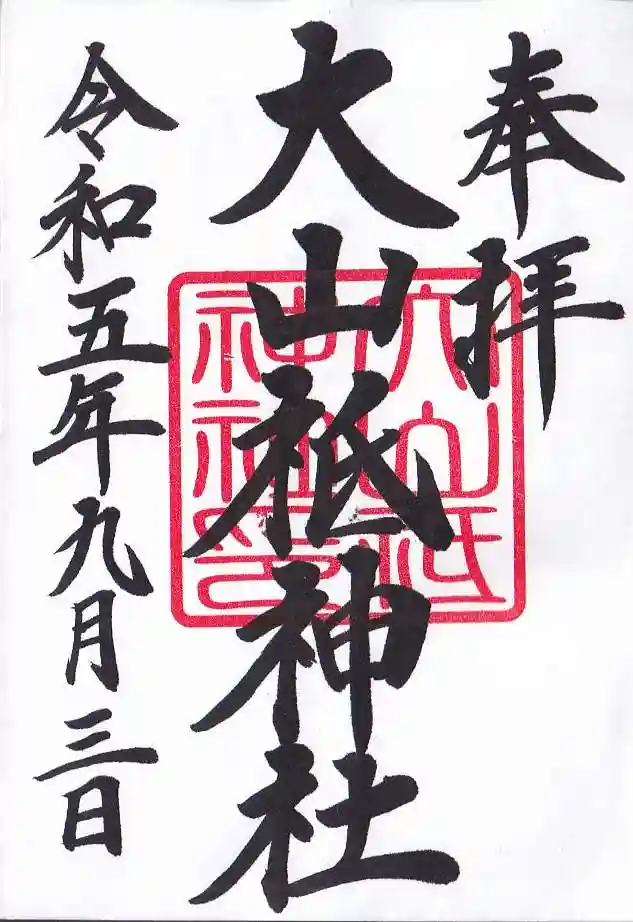 奉拝
大山祇神社
大山祇神社印
令和五年九月三日